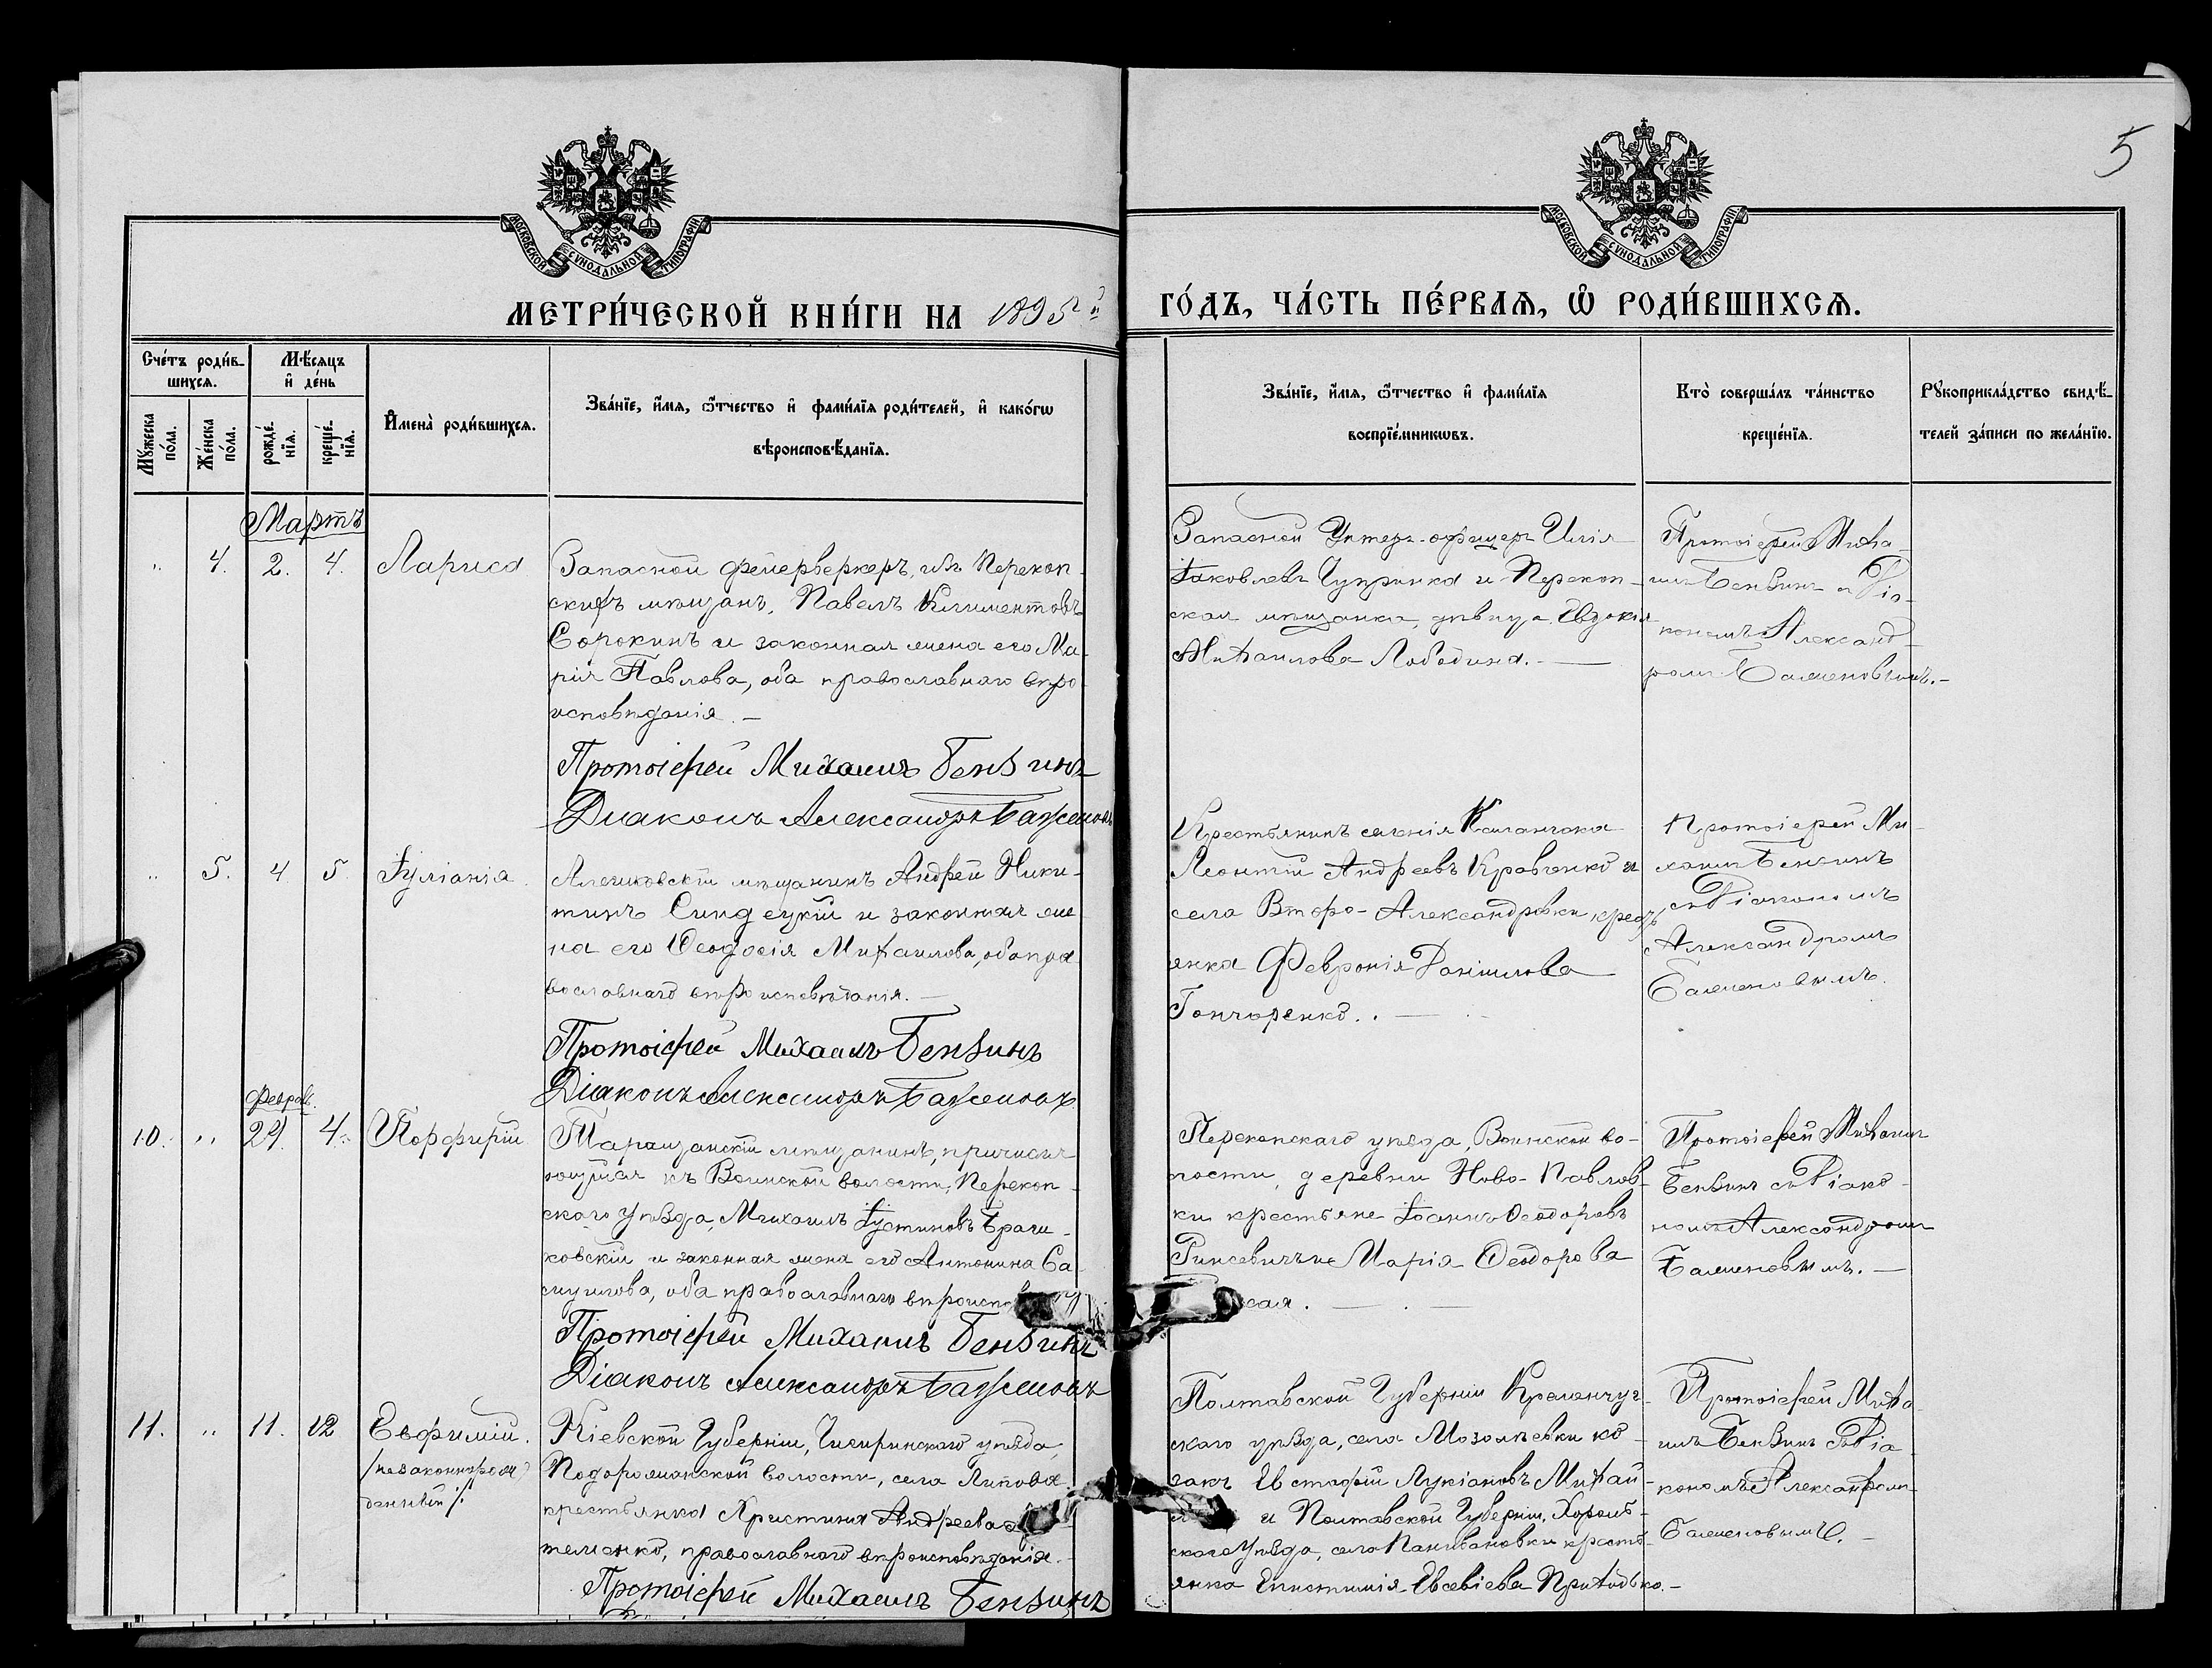 5
МОСКОВСКОЙ СѴНОДАЛЬНОЙ ТИПОГРАФІИ
МОСКОВСКОЙ СѴНОДАЛЬНОЙ ТИПОГРАФІИ
МЕТРИ́ЧЕСКОЙ КНИ́ГИ НА 1895й ГО́ДЪ, ЧА́СТЬ ПЕ́РВАѦ, Ѡ҆ РОДИ́ВШИХСѦ.
Сче́тъ роди́в-
шихсѧ.
Мꙋ́жеска
по́ла.
Же́нска
по́ла.
Мѣ́сѧцъ
и҆ де́нь
рожде́-
нїѧ.
креще́-
нїѧ.
И҆мена̀ роди́вшихсѧ.
Зва́нїе, и҆́мѧ, ѻ҆́тчество и҆ фами́лїѧ роди́телей, и҆ како́гѡ
вѣроисповѣ́данїѧ.
Зва́нїе, и҆́мѧ, ѻ҆́тчество и҆ фами́лїѧ
воспрїе́мникѡвъ.
Кто̀ соверша́лъ та́инство
креще́нїѧ.
Рꙋкоприкла́дство свидѣ́-
телей за́писи по жела́нїю.
Мартъ
" 4. 2. 4. Лариса
Запасной фейерверкеръ, изъ Перекоп-
скихъ мѣщанъ, Павелъ Климентовъ
Сорокинъ и законная жена его Ма-
рія Павлова, оба православнаго вѣро-
исповѣданія. —
Протоіерей Михаилъ Бензинъ
Диаконъ Александръ Баженовъ
Запасной Унтеръ-офицеръ Илія
Іаковлевъ Чупринка и Перекоп-
ская мѣщанка, дѣвица Евдокія
Михаилова Лободина. —
Протоіерей Миха-
илъ Бензинъ съ Діа-
кономъ Александ-
ромъ Баженовымъ. —
" 5. 4 5 Іуліанія.
Алешковскій мѣщанинъ Андрей Ники-
тинъ Синдецкій и законная же
на его Ѳеодосія Михаилова, оба пра
вославнаго вѣроисповѣданія. —
Протоіерей Михаилъ Бензинъ
Діаконъ Александръ Баженовъ
Крестьянинъ селенія Каланчака
Леонтій Андреевъ Кравченко и
села Второ-Александровки, крестъ
янка Февронія Даніилова
Гончаренко. . —
Протоіерей Ми-
хаилъ Бензинъ
съ Діакономъ
Александромъ
Баженовымъ.
Феврал.
10. " 24. 4. Порфирій
Таращанскій мѣщанинъ, причисля
ющійся къ Воинской волости, Перекоп-
скаго уѣзда, Михаилъ Іустиновъ Врачи-
ковскій и законная жена его Антонина Са-
муилова, оба православнаго вѣроиспо
Протоіерей Михаилъ Бензинъ
Діаконъ Александръ Баженовъ
Перекопскаго уѣзда, Воинской во-
лости, деревни Ново-Павлов-
ки крестьяне Іоаннъ Ѳеодоровъ
Ринсевичъ и Марія Ѳеодорова
ская. — . —
Протоіерей Михаилъ
Бензинъ съ Діако-
номъ Александромъ
Баженовымъ. —
11. " 11. 12 Евфимій.
/незаконнорож
денный/:
Кіевской Губерніи, Чигиринскаго уѣзда
Подорожанской волости, села Липова
крестьянка Христина Андреева
теменко, православнаго вѣроисповѣданія. -
Протоіерей Михаилъ Бензинъ
Полтавской Губерніи Кременчуг-
скаго уѣзда, села Мозолѣевки ко-
закъ Евстафій Лукіановъ Михай-
и Полтавской Губерніи, Хороль-
скаго Уѣзда, села Панивановки кресть-
янка Епистимія Евсевіева Приходько. —
Протоіерей Миха-
илъ Бензинъ съ Діа-
кономъ Александромъ
Баженовымъ. —